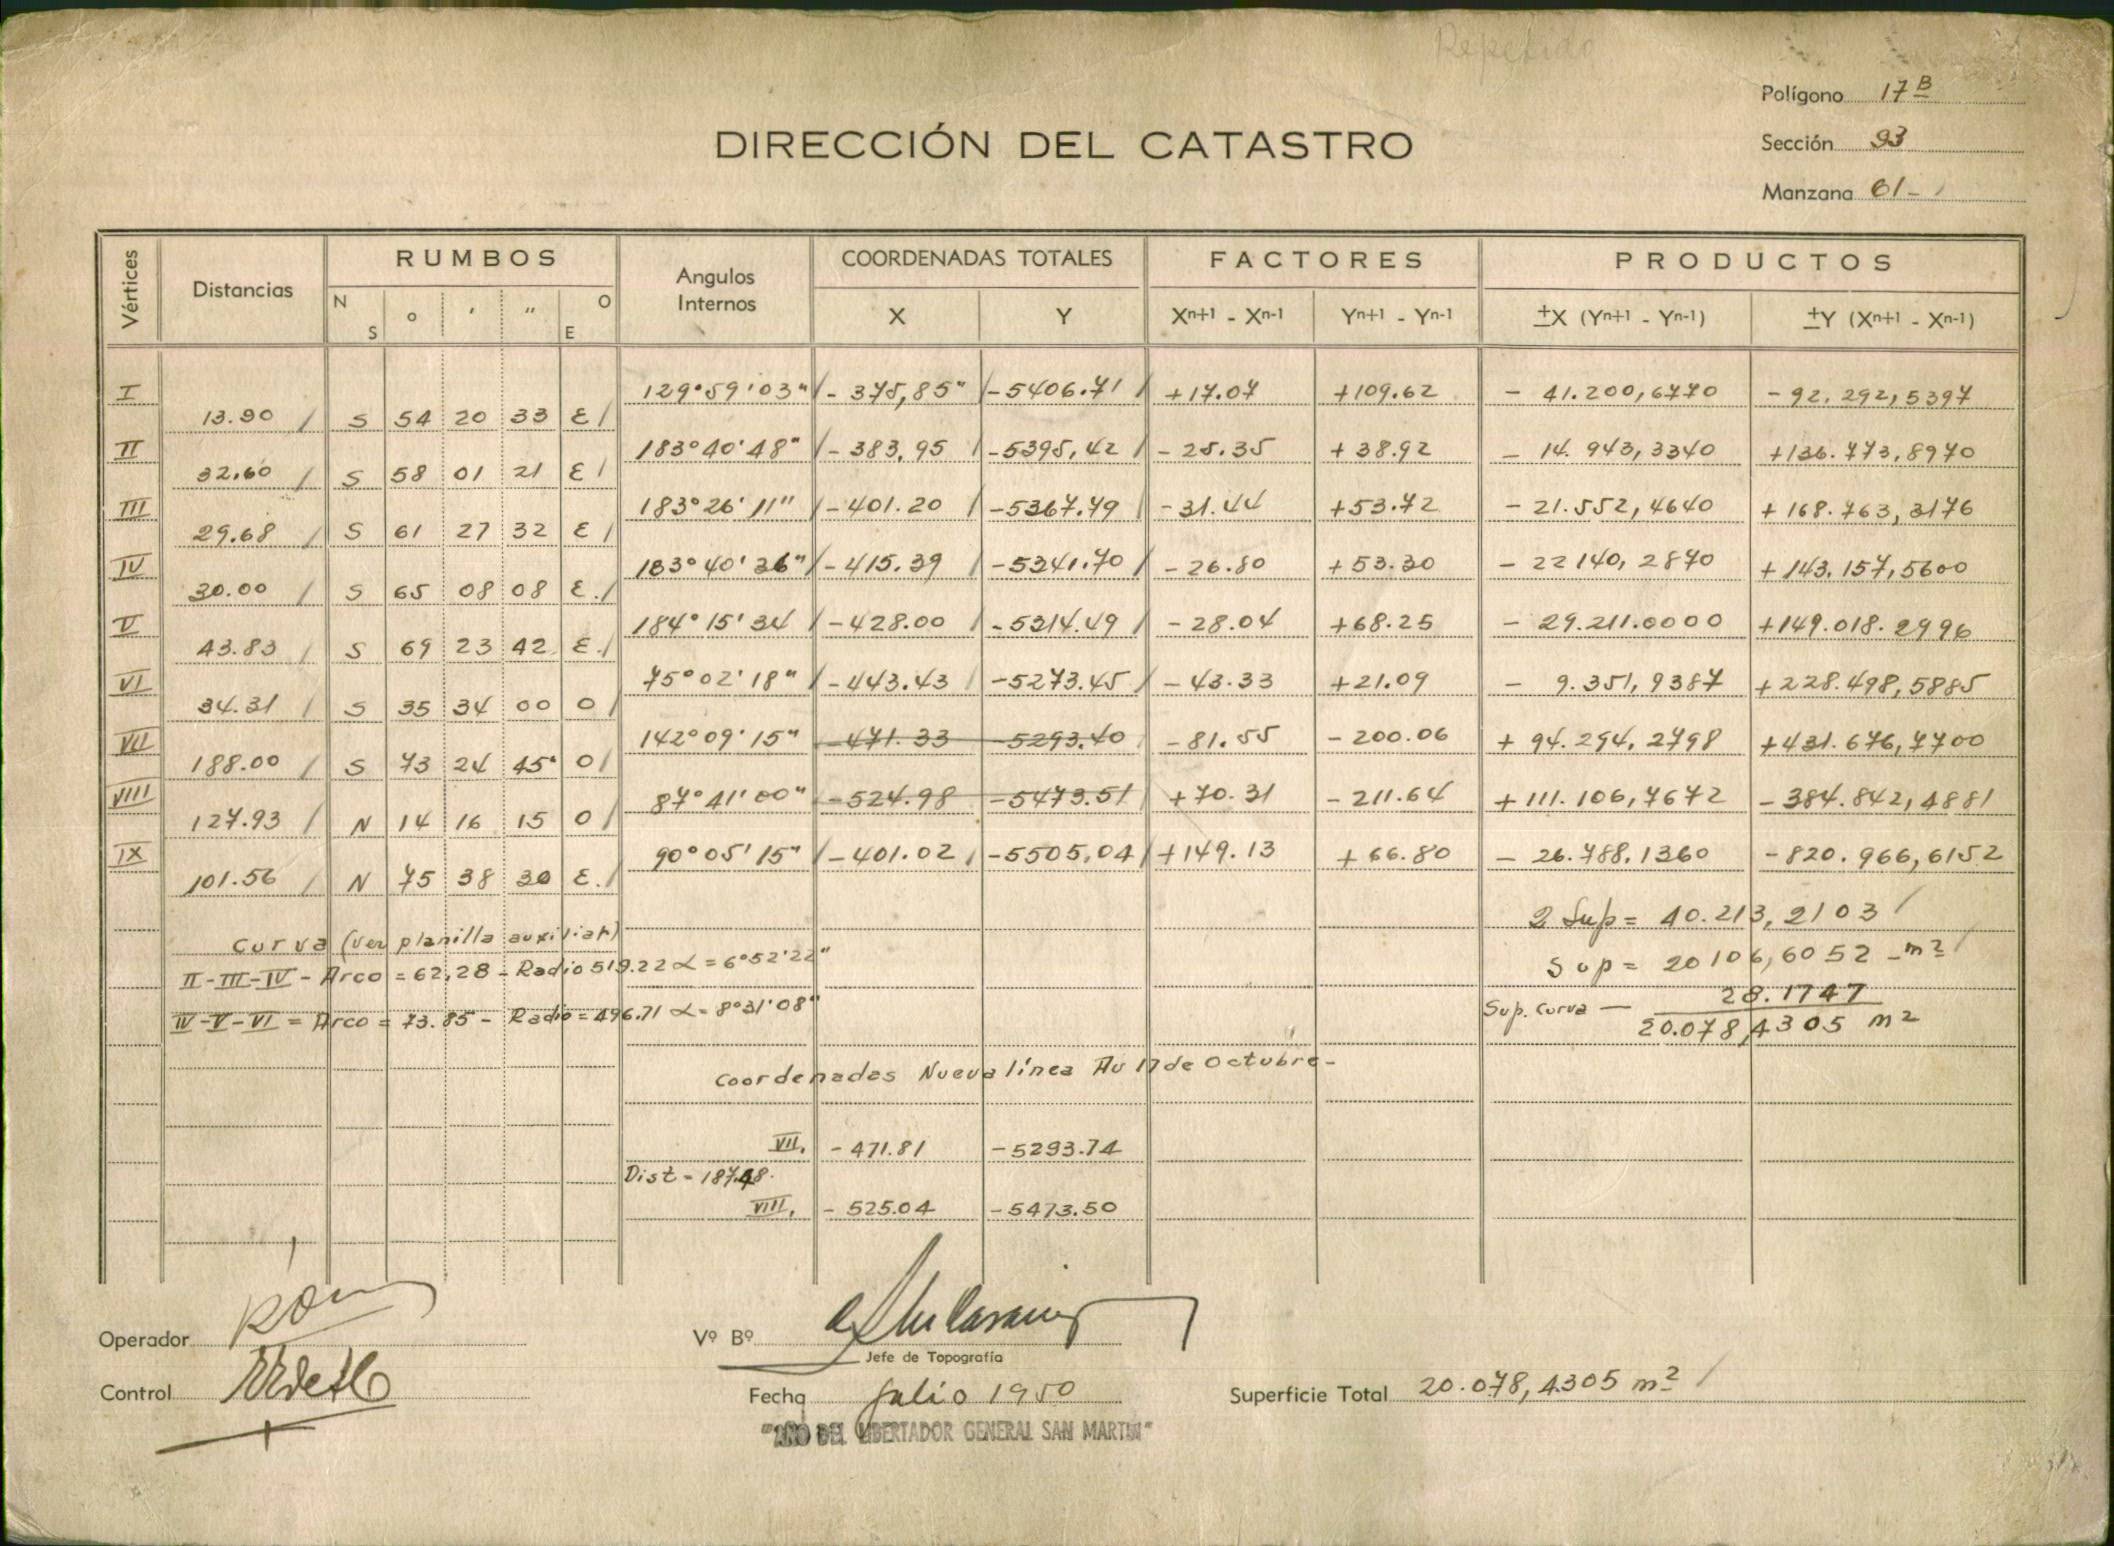 Repetido
Polígono 17 B
DIRECCIÓN DEL CATASTRO
Sección 93
Manzana 61-
Vértices Distancias RUMBOS Angulos Internos COORDENADAS TOTALES FACTORES PRODUCTOS
N S ° ' " O E X Y Xn+1 - Xn-1 Yn+1 - Yn-1 ±X (Yn+1 - Yn-1) ±Y (Xn+1 - Xn-1)
I 129°59'03" - 375,85" -5406.71 +17.07 +109.62 - 41.200,6770 - 92.292,5397
13.90 S 54 20 33 E
II 183°40'48" - 383,95 -5395,42 - 25.35 + 38.92 - 14.943,3340 +136.773,8970
32.60 S 58 01 21 E
III 183°26'11" -401.20 -5367.79 -31.44 +53.72 - 21.552,4640 + 168.763,3176
29.68 S 61 27 32 E
IV 183°40'36" -415.39 -5341.70 - 26.80 +53.30 - 22140,2870 + 143.157,5600
30.00 S 65 08 08 E.
V 184°15'34 -428.00 -5314.49 - 28.04 +68.25 - 29.211.0000 +149.018.2996
43.83 S 69 23 42 E.
VI 75°02'18" -443.43 -5273.45 - 43.33 +21.09 - 9.351,9387 +228.498,5885
34.31 S 35 34 00 O
VII 142°09'15" -471.33 -5293.40 -81.55 - 200.06 + 94.294,2798 +431.676,7700
188.00 S 73 24 45" O
VIII 87°41'00" -524.98 -5473.51 +70.31 - 211.64 + 111.106,7672 - 384.842,4881
127.93 N 14 16 15 O
IX 90°05'15" -401.02 -5505,04 +149.13 + 66.80 - 26.788,1360 -820.966,6152
101.56 N 75 38 30 E.
2 Sup = 40.213,2103
Curva (ver planilla auxiliar)
Sup = 20106,6052 - m²
II-III-IV - Arco = 62,28 - Radio 519.22 α = 6°52'22"
Sup. curva — 28.1747
IV-V-VI = Arco = 73.85 - Radio = 496.71 α = 8°31'08"
20.078,4305 m²
Coordenadas Nueva línea Av 17 de Octubre-
VII. - 471.81 -5293.74
Dist = 187.48.
VIII. - 525.04 -5473.50
Operador
Vº Bº
Jefe de Topografía
Control
Fecha Julio 1950
Superficie Total 20.078,4305 m²
"AÑO DEL LIBERTADOR GENERAL SAN MARTIN"